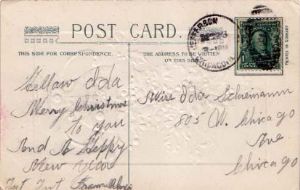 POST CARD.
THIS SIDE FOR CORRESPONDENCE.
THE ADDRESS TO BE WRITTEN
ON THIS SIDE.
Hellow Ida
Merry Christmas
To you
And A Happy
New Year
Miss Ida
805 N. Chicago
Ave
Chicago